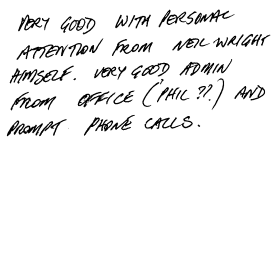 VERY GOOD WITH PERSONAL
ATTENTION FROM NEIL WRIGHT
HIMSELF. VERY GOOD ADMIN
FROM OFFICE ('PHIL ??) AND
PROMPT PHONE CALLS.